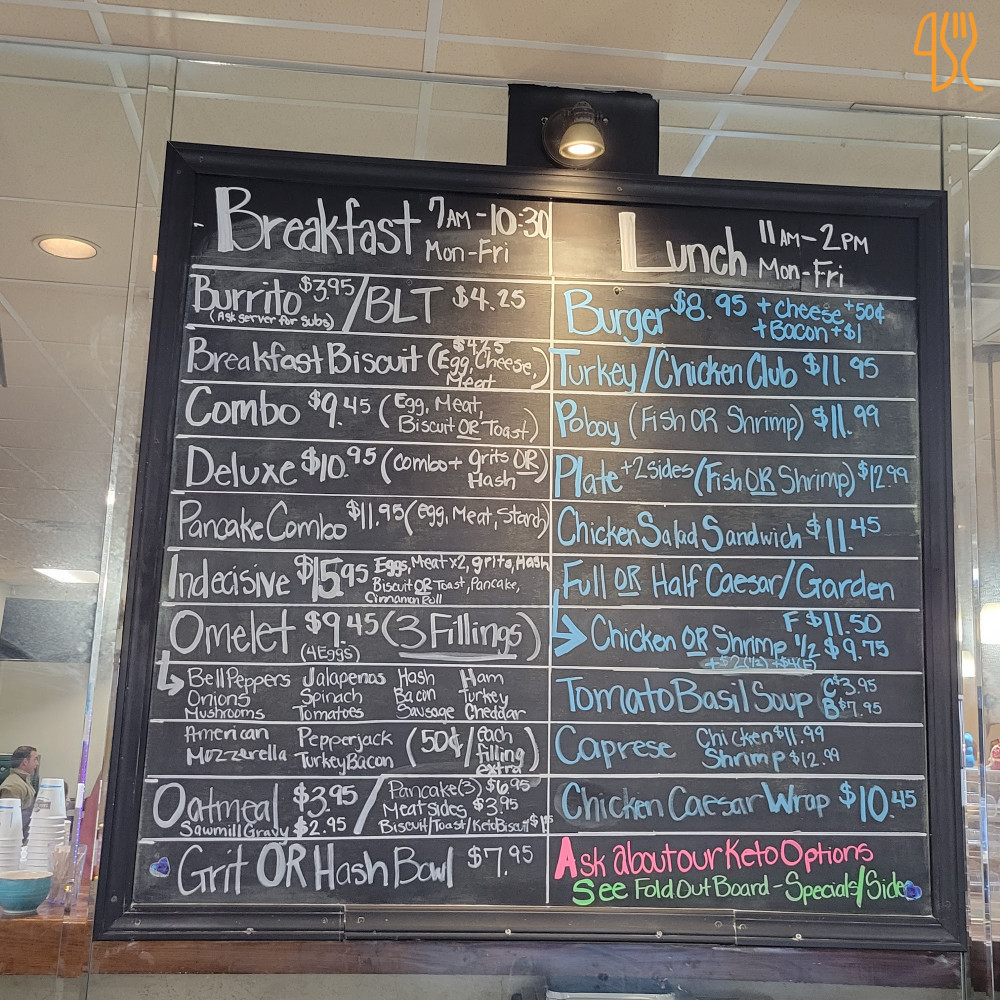 Breakfast 7AM-10:30
Mon-Fri
Burrito $3.95 / BLT $4.25
(Ask server for subs)
Breakfast Biscuit (Egg, Cheese, Meat)
Combo $9.45 (Egg, Meat,
Biscuit OR Toast)
Deluxe $10.95 (combo + grits OR
Hash)
Pancake Combo $11.95 (egg, Meat, Starch)
Indecisive $15.95 Eggs, Meat x2, grits, Hash
Biscuit OR Toast, Pancake,
Cinnamon Roll
Omelet $9.45 (3 Fillings)
(4 Eggs)
Bell Peppers Jalapenos Hash Ham
Onions Spinach Bacon Turkey
Mushrooms Tomatoes Sausage Cheddar
American Pepperjack (50¢/each
Mozzerella Turkey Bacon filling
extra)
Oatmeal $3.95 / Pancake(3) $6.95
Meat sides $3.95
Sawmill Gravy $2.95 Biscuit/Toast/Keto Biscuit
Grit OR Hash Bowl $7.95
Lunch 11AM-2PM
Mon-Fri
Burger $8.95 + cheese +50¢
+Bacon +$1
Turkey/Chicken Club $11.95
Poboy (Fish OR Shrimp) $11.99
Plate +2 sides/(Fish OR Shrimp) $12.99
Chicken Salad Sandwich $11.45
Full OR Half Caesar/Garden
F $11.50
Chicken OR Shrimp 1/2 $9.75
Tomato Basil Soup C $3.95
B $7.95
Caprese Chicken $11.99
Shrimp $12.99
Chicken Caesar Wrap $10.45
Ask about our Keto Options
See Fold Out Board - Specials/Sides